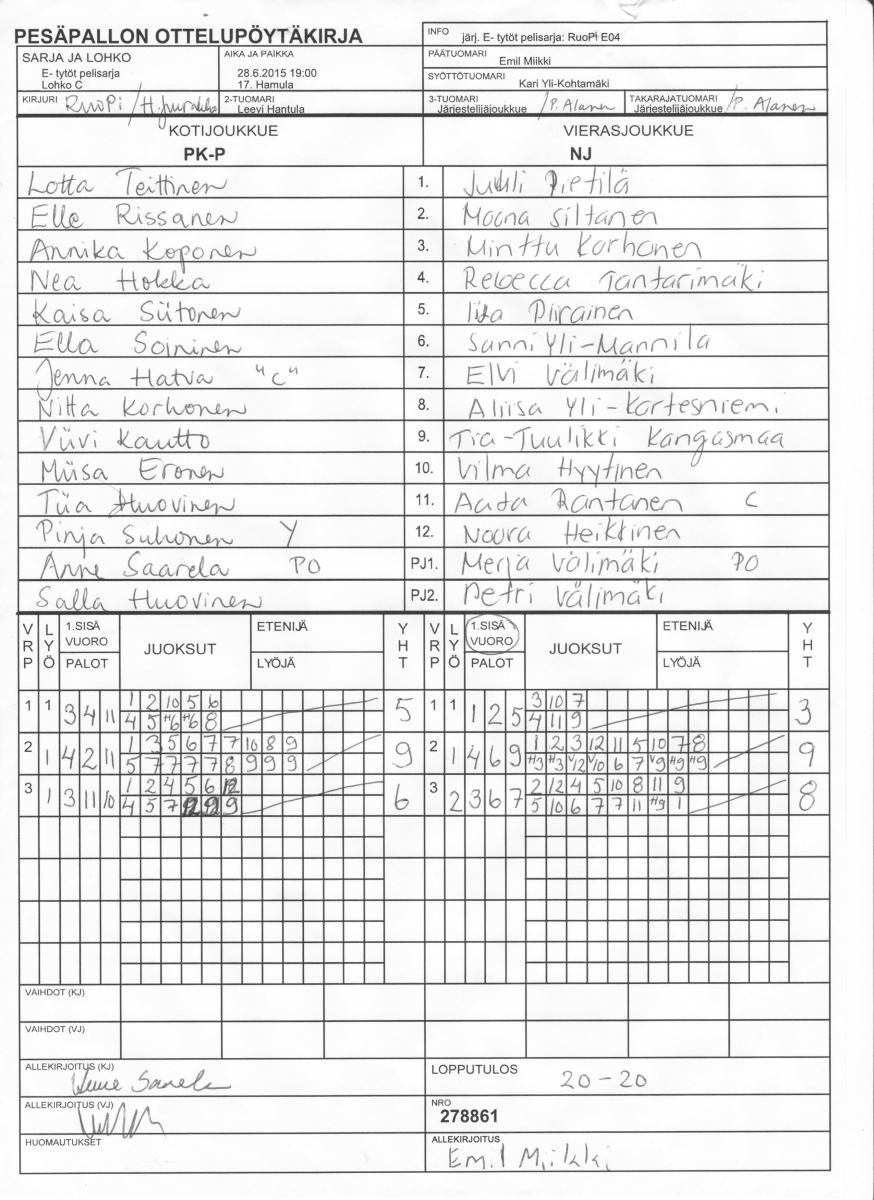 PESÄPALLON OTTELUPÖYTÄKIRJA
INFO järj. E- tytöt pelisarja: RuoPi E04
SARJA JA LOHKO
E- tytöt pelisarja
Lohko C
AIKA JA PAIKKA
28.6.2015 19:00
17. Hamula
PÄÄTUOMARI Emil Miikki
SYÖTTÖTUOMARI Kari Yli-Kohtamäki
KIRJURI RUOPi /H.
2-TUOMARI
Leevi Hantula
3-TUOMARI
Järjestelijäjoukkue /P. Alanen
TAKARAJATUOMARI
Järjestelijäjoukkue /P. Alanen
KOTIJOUKKUE VIERASJOUKKUE
PK-P NJ
Lotta Teittinen 1. Juuli Pietilä
Elle Rissanen 2. Moona Siltanen
Annika Koponen 3. Minttu Korhonen
Nea Hokka 4. Rebecca Tantarimäki
Kaisa Siitonen 5. Iida Piirainen
Ella Soininen 6. Sanni Yli-Mannila
Jenna Hatva "C" 7. Elvi Välimäki
Niitta Korhonen 8. Aliisa Yli-Kortesniemi
Viivi Kautto 9. Tia-Tuulikki Kangasmaa
Miisa Eronen 10. Vilma Hyytinen
Tiia Huovinen 11. Aada Rantanen C
Pinja Suhonen Y 12. Noora Heikkinen
Anne Saarela PO PJ1. Merja Välimäki PO
Salla Huovinen PJ2. Petri Välimäki
VRP LYÖ 1.SISÄ VUORO PALOT JUOKSUT ETENIJÄ LYÖJÄ YHT VRP LYÖ 1.SISÄ VUORO PALOT JUOKSUT ETENIJÄ LYÖJÄ YHT
1 1 3 4 11 1 2 10 5 6 5 1 1 1 2 5 3 10 7 3
4 5 H6 H6 8 4 11 9
2 1 4 2 11 1 3 5 6 7 7 10 8 9 9 2 1 4 6 9 1 2 3 12 11 5 10 7 8 9
5 7 7 7 7 8 9 9 9 H3 H3 V12 V10 6 7 V9 H9 H9
3 1 3 11 10 1 2 4 5 6 12 6 3 2 3 6 7 2 12 4 5 10 8 11 9 8
4 5 7 9 5 10 6 7 7 11 H9 1
VAIHDOT (KJ)
VAIHDOT (VJ)
ALLEKIRJOITUS (KJ) Anne Saarela
LOPPUTULOS 20-20
ALLEKIRJOITUS (VJ)
NRO
278861
HUOMAUTUKSET
ALLEKIRJOITUS
Emil Miikki